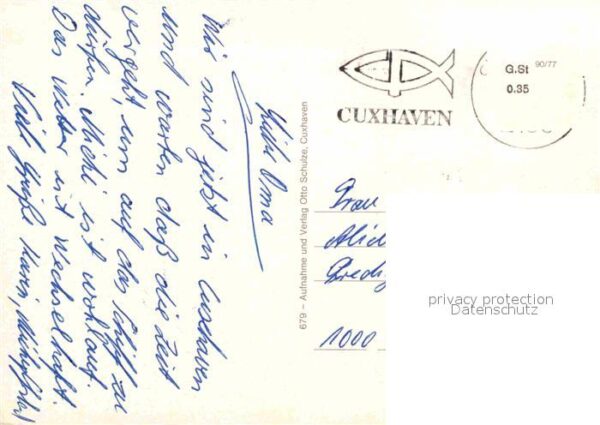 Liebe Oma
Wir sind jetzt in Cuxhaven
und warten daß die Zeit
vergeht, um auf das Schiff zu
dürfen. Michi ist wohlauf.
Das Wetter ist wechselhaft.
Viele Grüße Karin,
679 – Aufnahme und Verlag Otto Schulze, Cuxhaven
CUXHAVEN
G.St 90/77
0.35
Frau
1000
privacy protection
Datenschutz